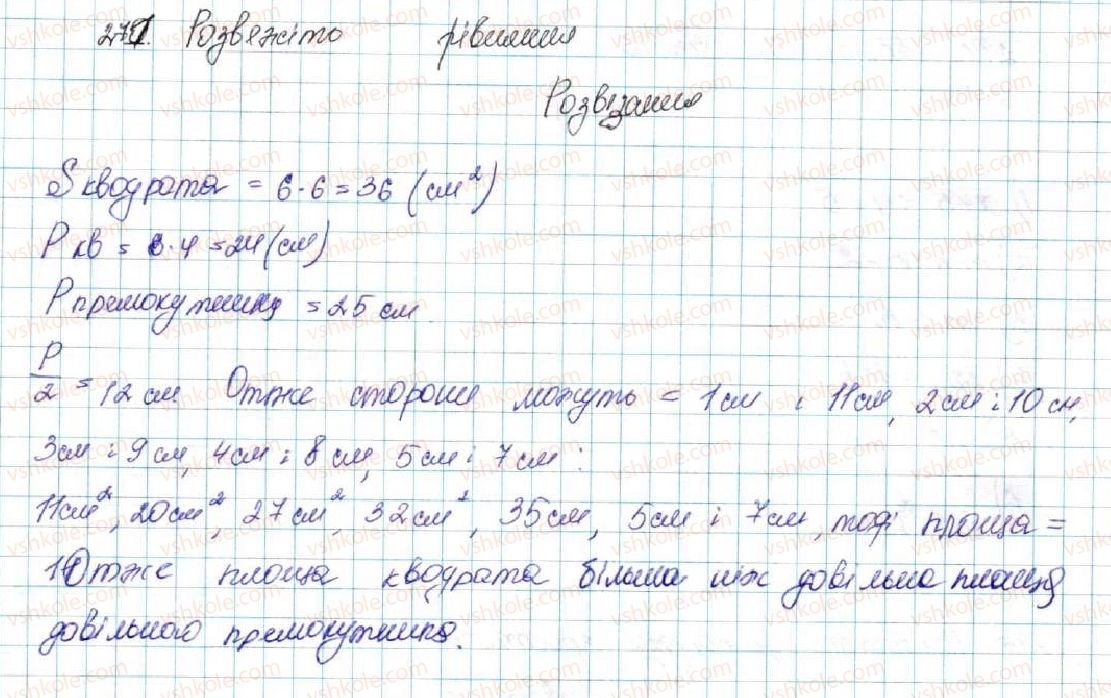 271. Розвяжіто рівняння
Розвізання
S квадрата = 6·6=36 (см²)
P кв = 6·4=24(см)
P прямокутника =25 см.
P/2 = 12 см Отже сторони можуть = 1см і 11см, 2см і 10см,
3см і 9см, 4см і 8см, 5см і 7см :
11см², 20см², 27см², 32см², 35см, 5см і 7см, тоді площа =
1) Отже площа квадрата більша ніж довільна площа
довільного прямокутника.